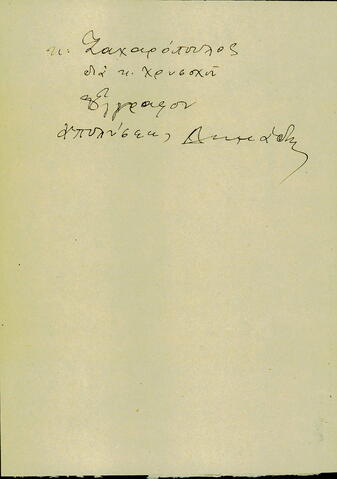 κ. Ζαχαρόπουλος
διά κ. Χρυσοχοῦ
Ἔγγραφον
ἀπολύσεως